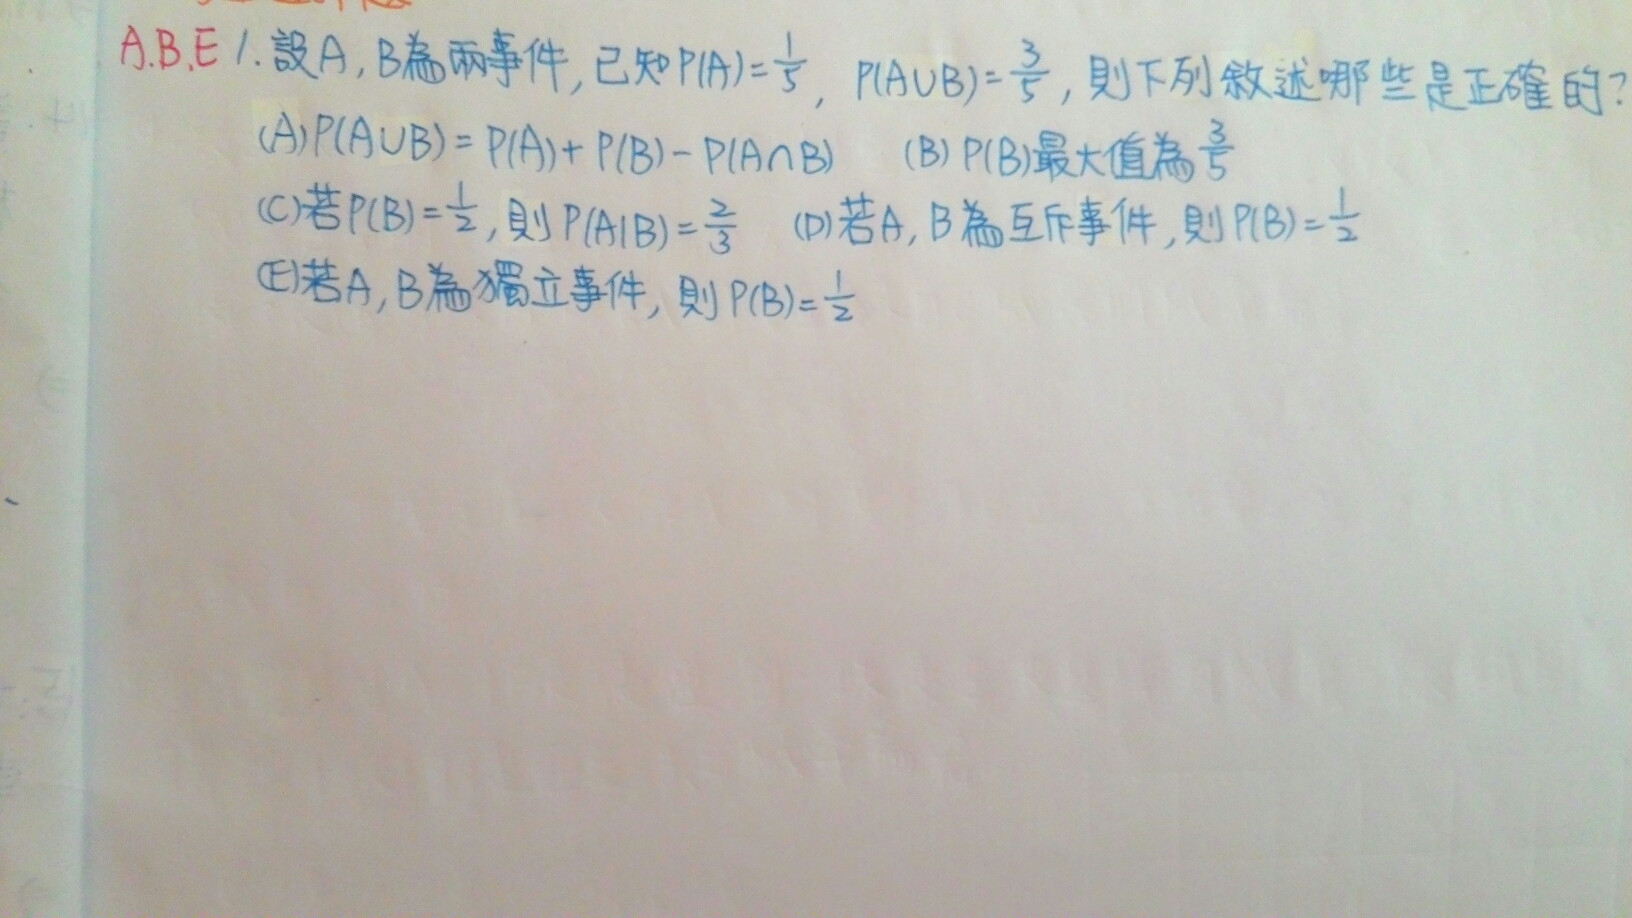 A.B.E 1.設A,B為兩事件,已知P(A)=1/5, P(A∪B)=3/5,則下列敘述哪些是正確的?
(A)P(A∪B)=P(A)+P(B)-P(A∩B) (B)P(B)最大值為3/5
(C)若P(B)=1/2,則P(A|B)=2/3 (D)若A,B為互斥事件,則P(B)=1/2
(E)若A,B為獨立事件,則P(B)=1/2